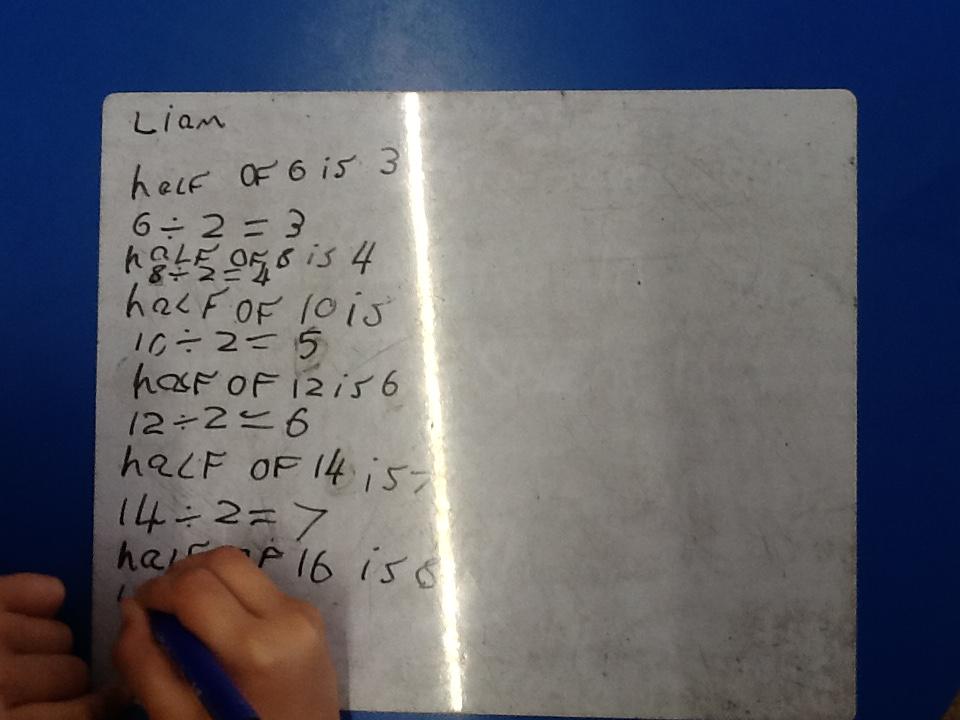 Liam
half OF 6 is 3
6 ÷ 2 = 3
half OF 8 is 4
8 ÷ 2 = 4
half OF 10 is
10 ÷ 2 = 5
half OF 12 is 6
12 ÷ 2 = 6
half OF 14 is 7
14 ÷ 2 = 7
half OF 16 is 8